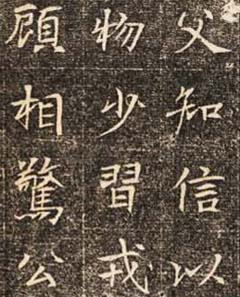 父知信以
物少習戎
顧相驚公